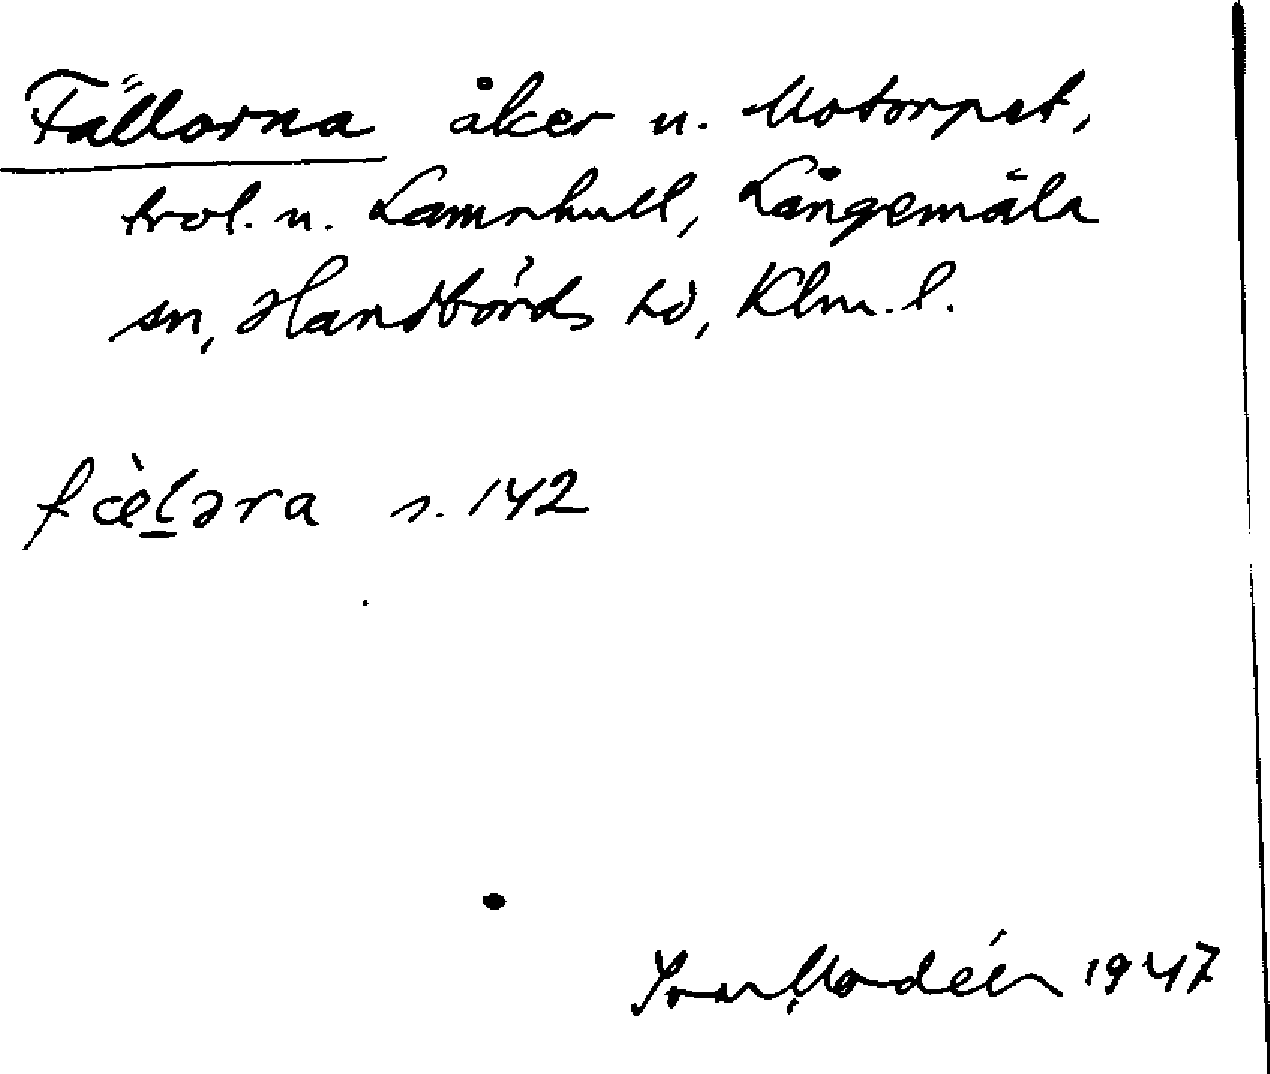 Fällorna åker u. Motorpet,
trol. u. Lamnhult, Långemåla
sn, Handbörds hd, Klm. l.
fæ̀lәra s. 142
Ivar Modéer 1947